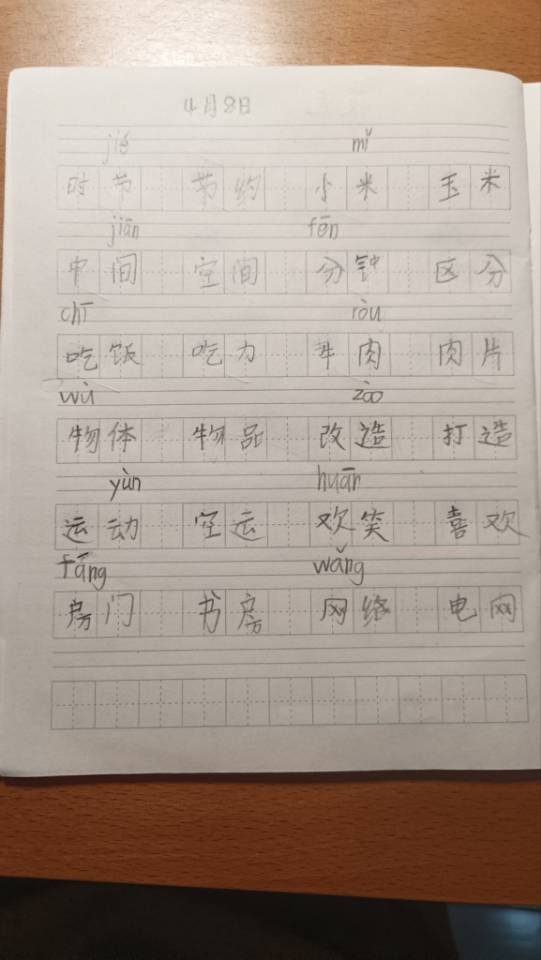 4月8日
jié mǐ
时节 节约 小米 玉米
jiān fēn
中间 空间 分钟 区分
chī ròu
吃饭 吃力 牛肉 肉片
wù zào
物体 物品 改造 打造
yùn huān
运动 空运 欢笑 喜欢
fáng wǎng
房门 书房 网络 电网